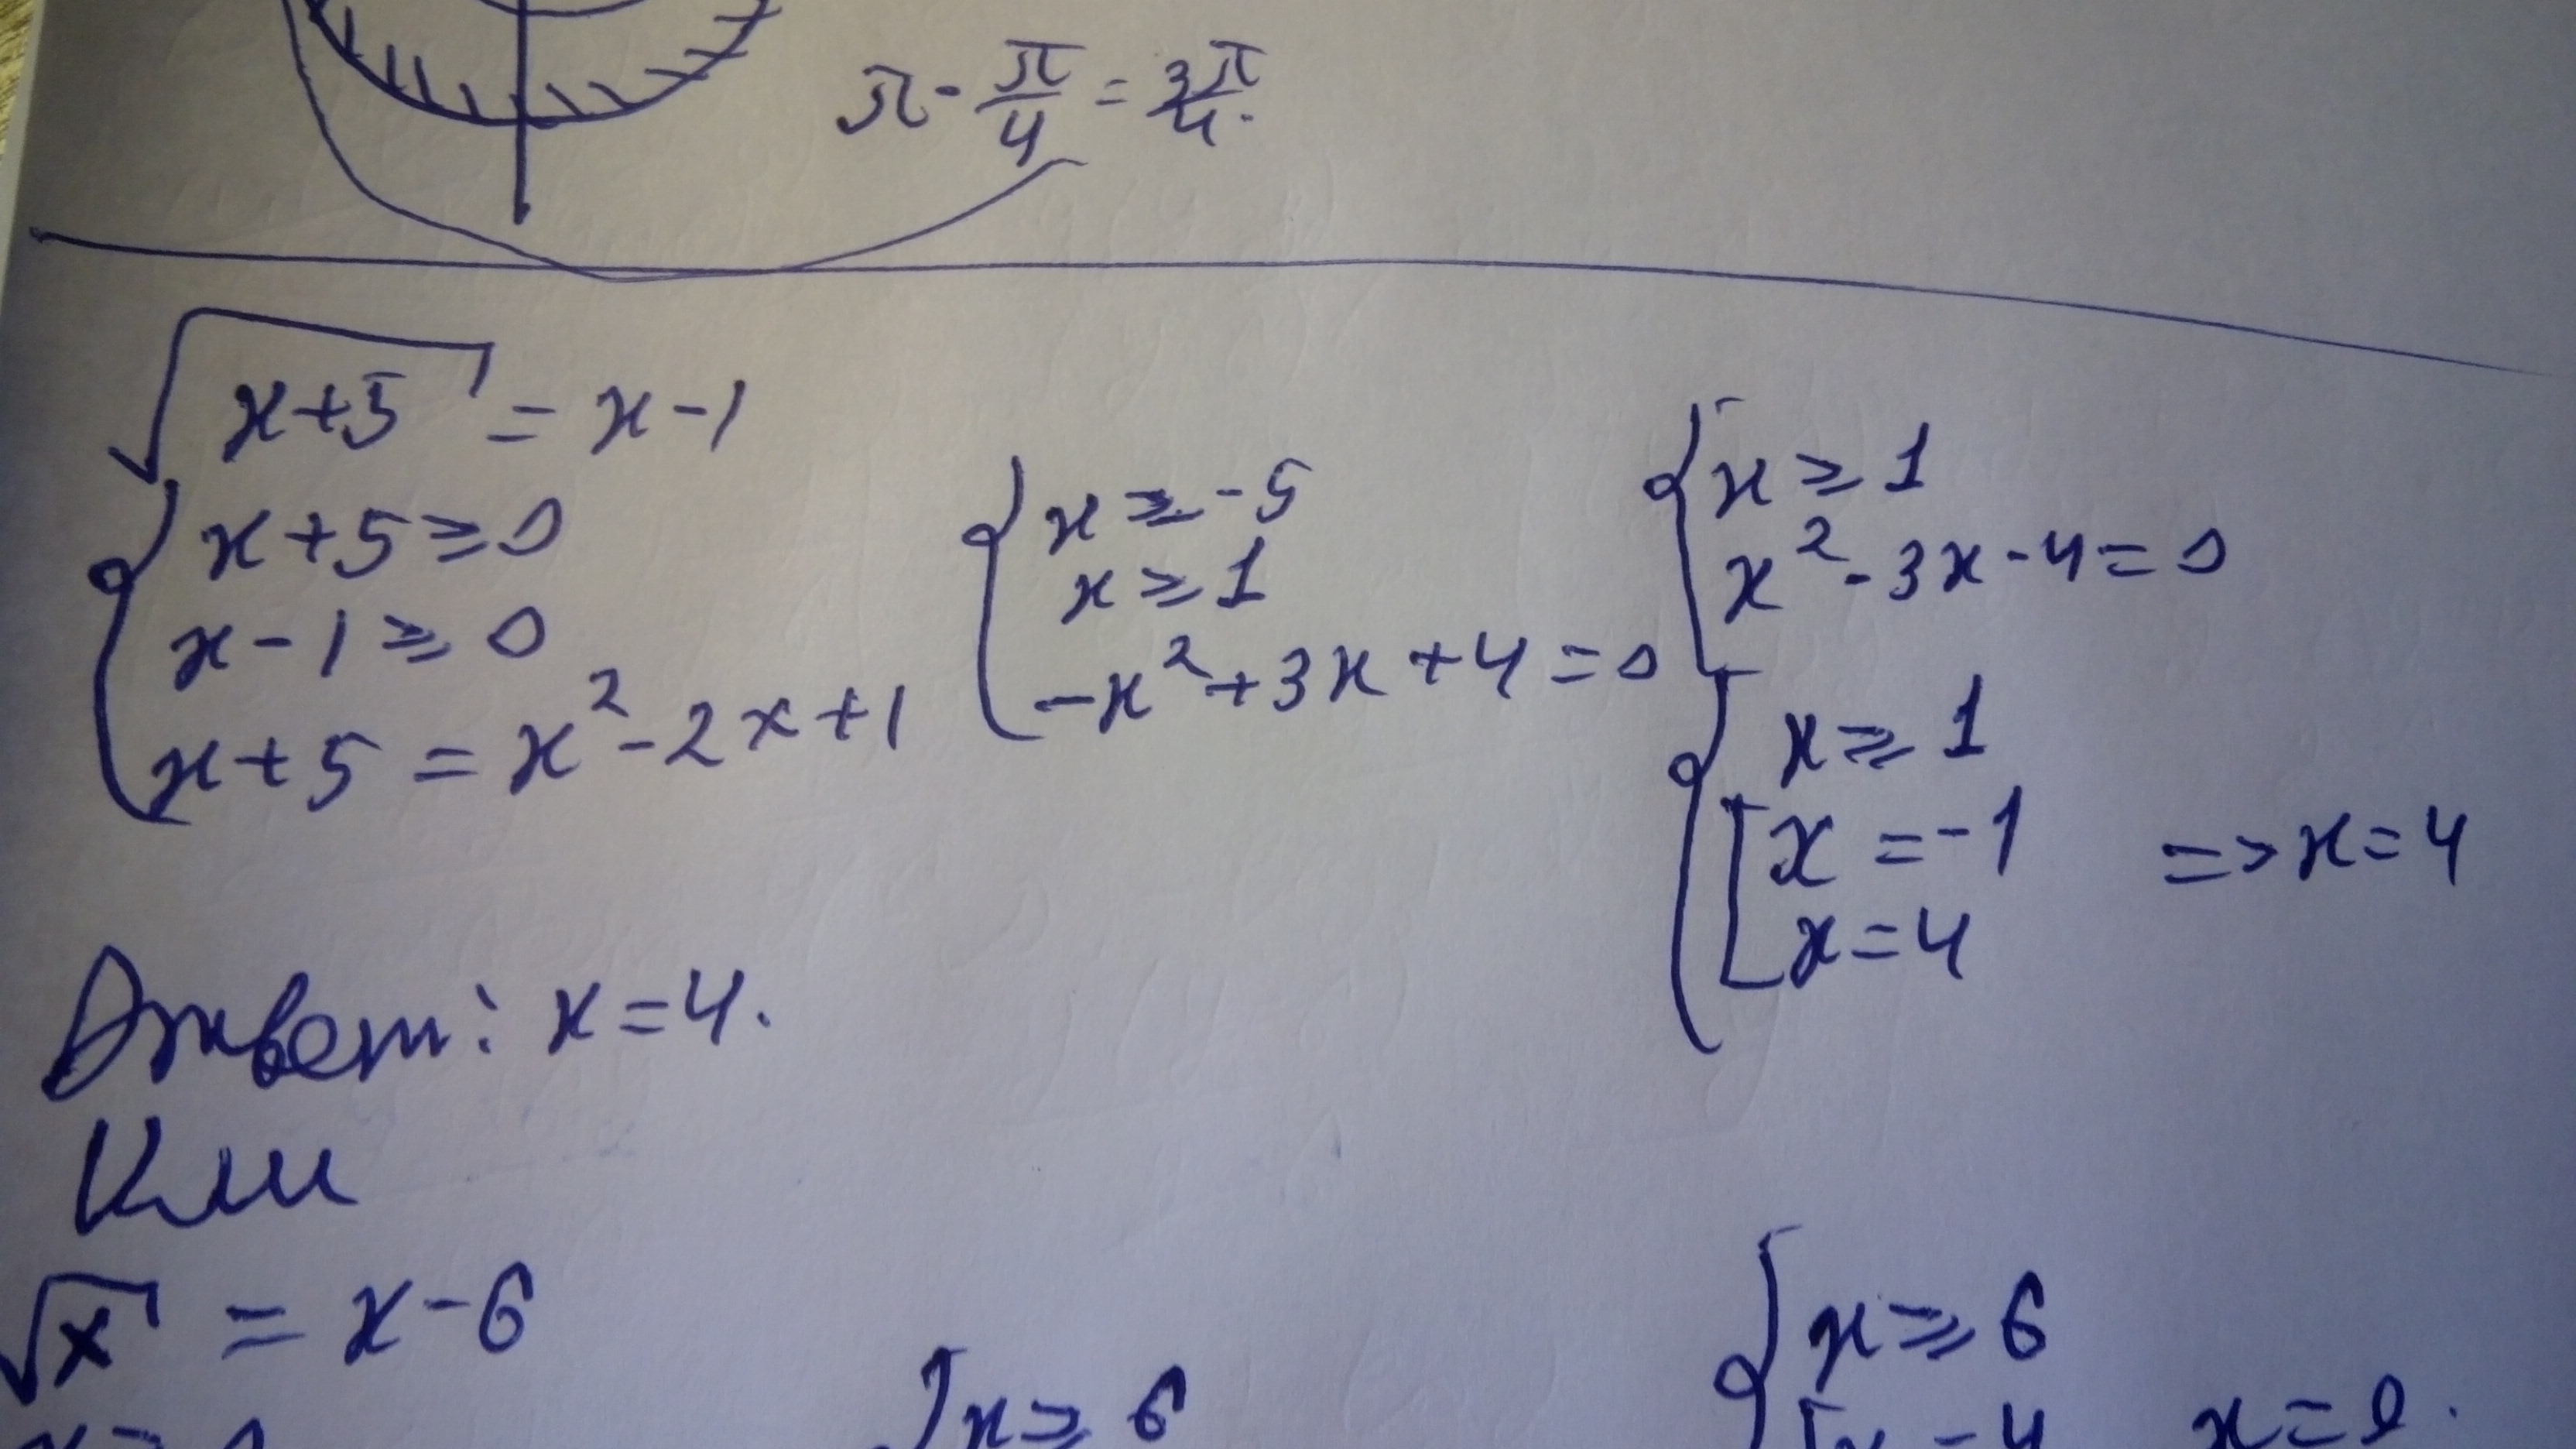 π - π/4 = 3π/4.
√(x+5) = x-1
{ x+5 ≥ 0
x-1 ≥ 0
x+5 = x²-2x+1
{ x ≥ -5
x ≥ 1
-x²+3x+4=0
{ x ≥ 1
x²-3x-4=0
{ x ≥ 1
[ x = -1
x = 4
=> x=4
Ответ: x=4.
Или
√x = x-6
x ≥ 6
{ x ≥ 6